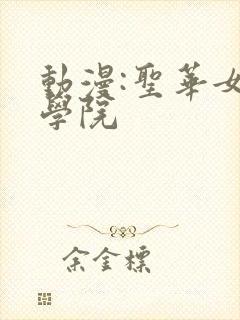 動漫:聖華女
學院
余金標